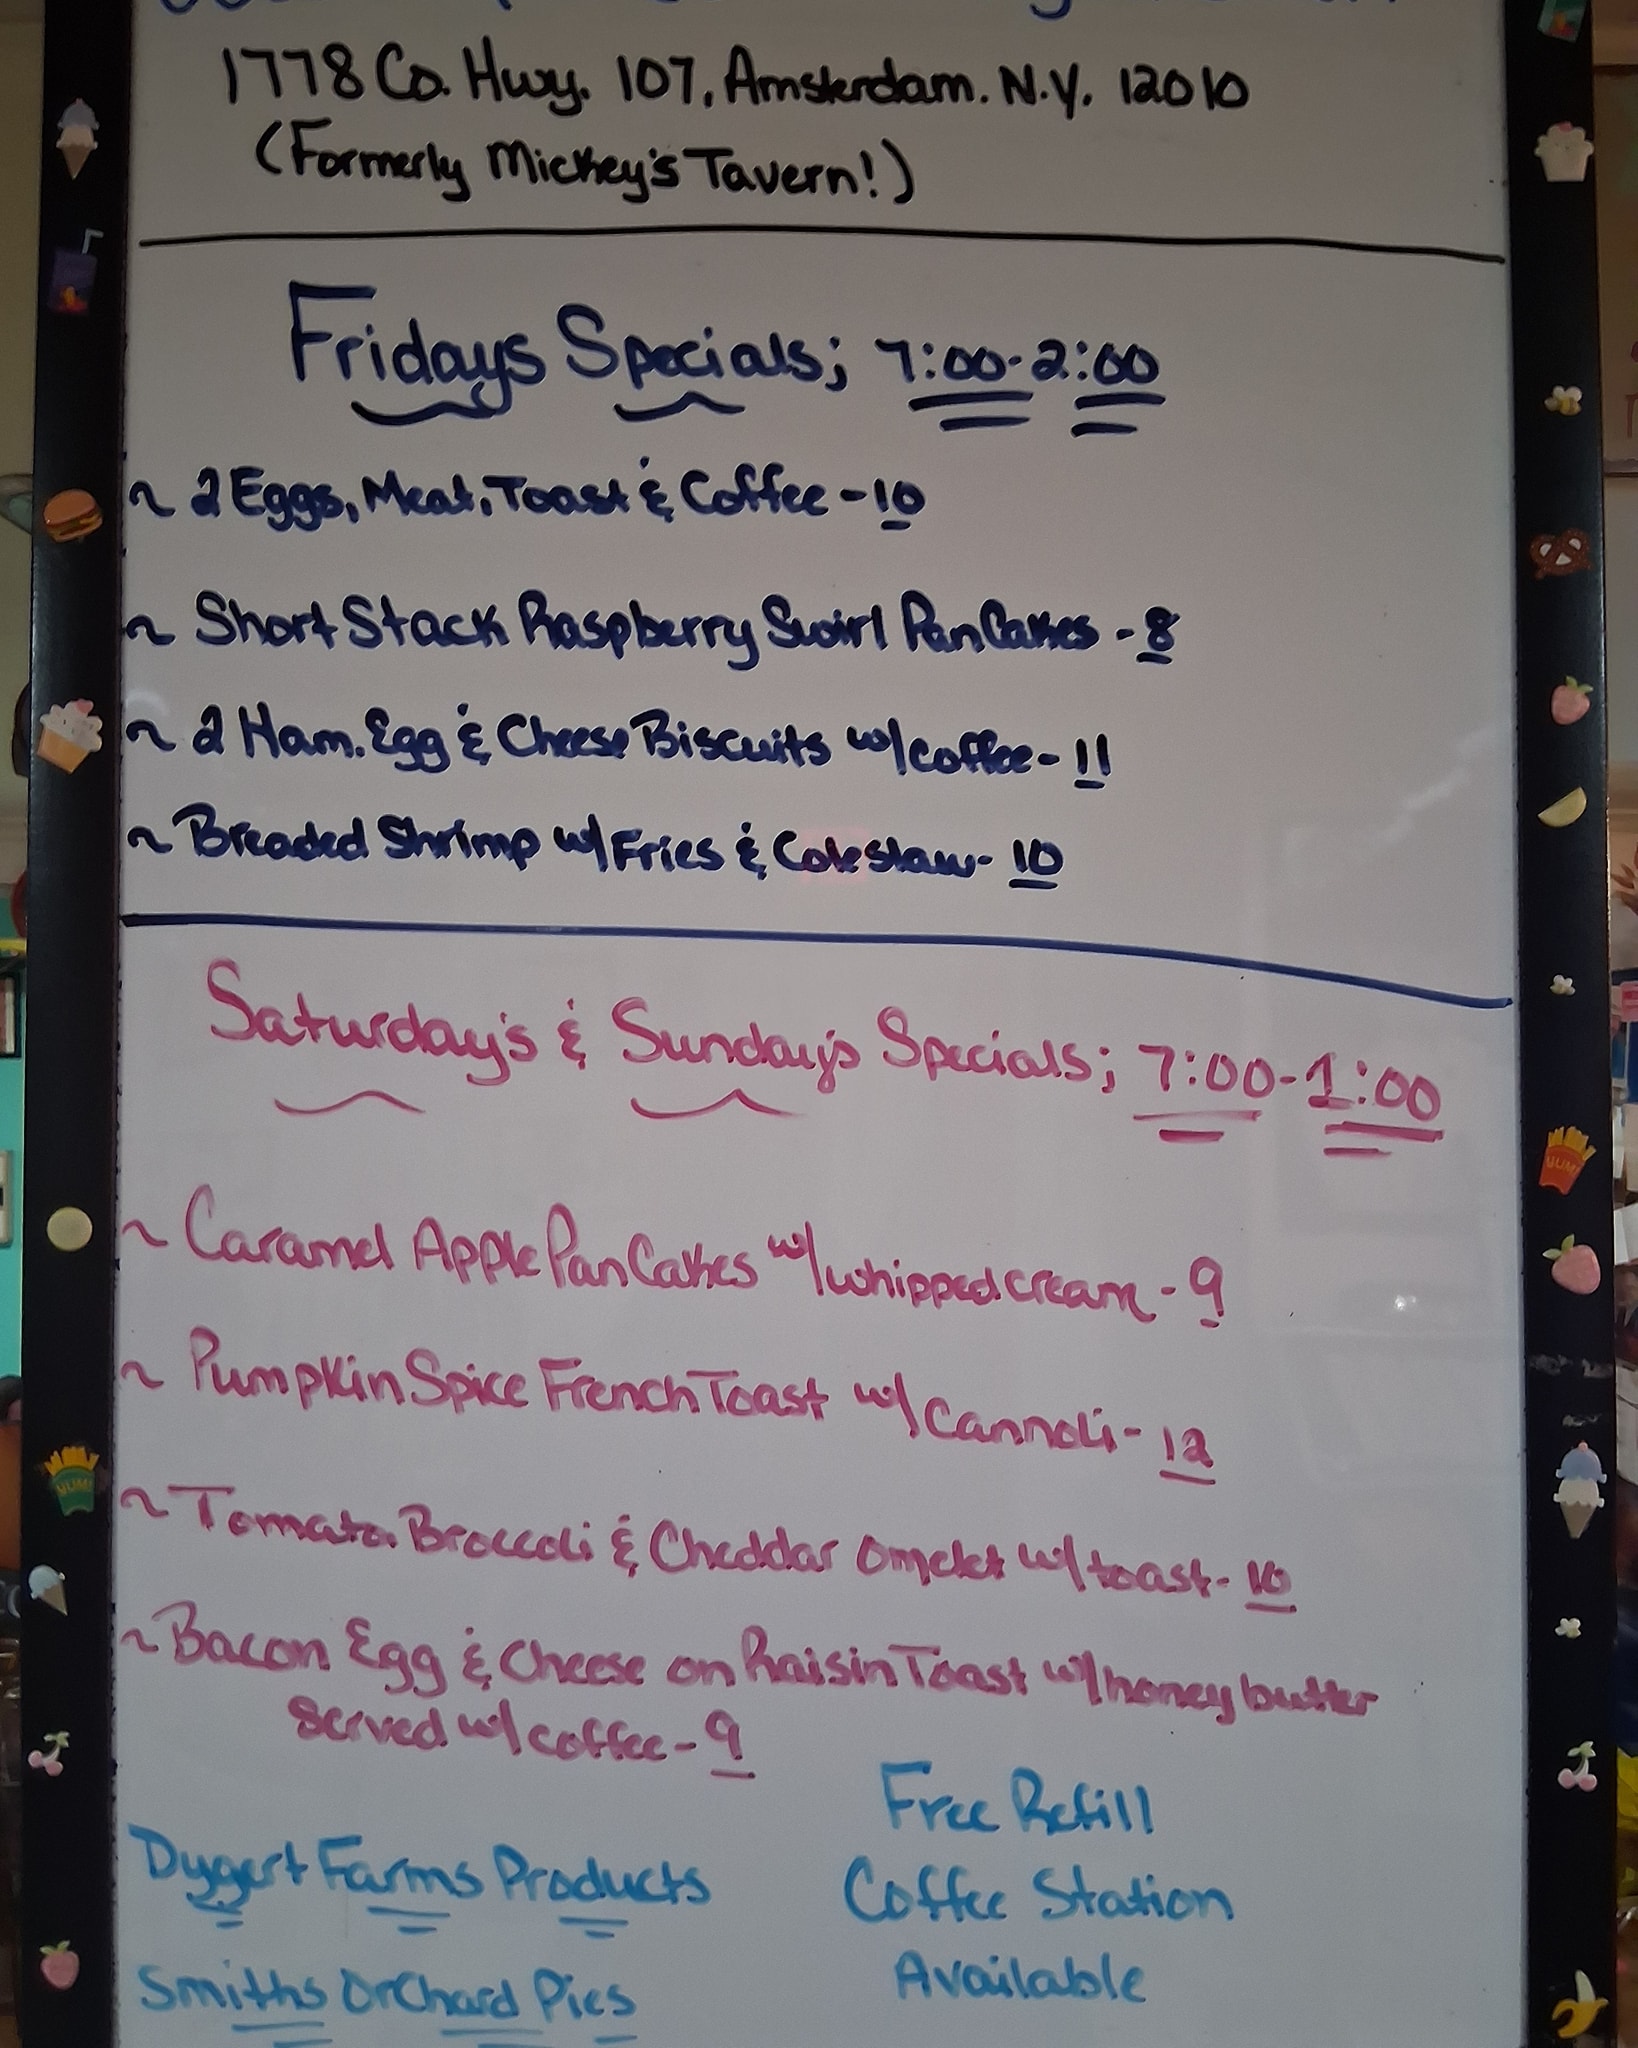 1778 Co. Hwy. 107, Amsterdam. N.Y. 12010
(Formerly Mickey's Tavern!)
Fridays Specials; 7:00-2:00
~ 2 Eggs, Meat, Toast & Coffee - 10
~ Short Stack Raspberry Swirl PanCakes - 8
~ 2 Ham. Egg & Cheese Biscuits w/coffee - 11
~ Breaded Shrimp w/Fries & Coleslaw - 10
Saturday's & Sunday's Specials; 7:00-1:00
~ Caramel Apple PanCakes w/whipped cream - 9
~ Pumpkin Spice French Toast w/Cannoli - 12
~ Tomato. Broccoli & Cheddar omelet w/toast - 10
~ Bacon Egg & Cheese on Raisin Toast w/honey butter
served w/coffee - 9
Free Refill
Coffee Station
Available
Dygert Farms Products
Smiths Orchard Pies
YUM!
YUM!